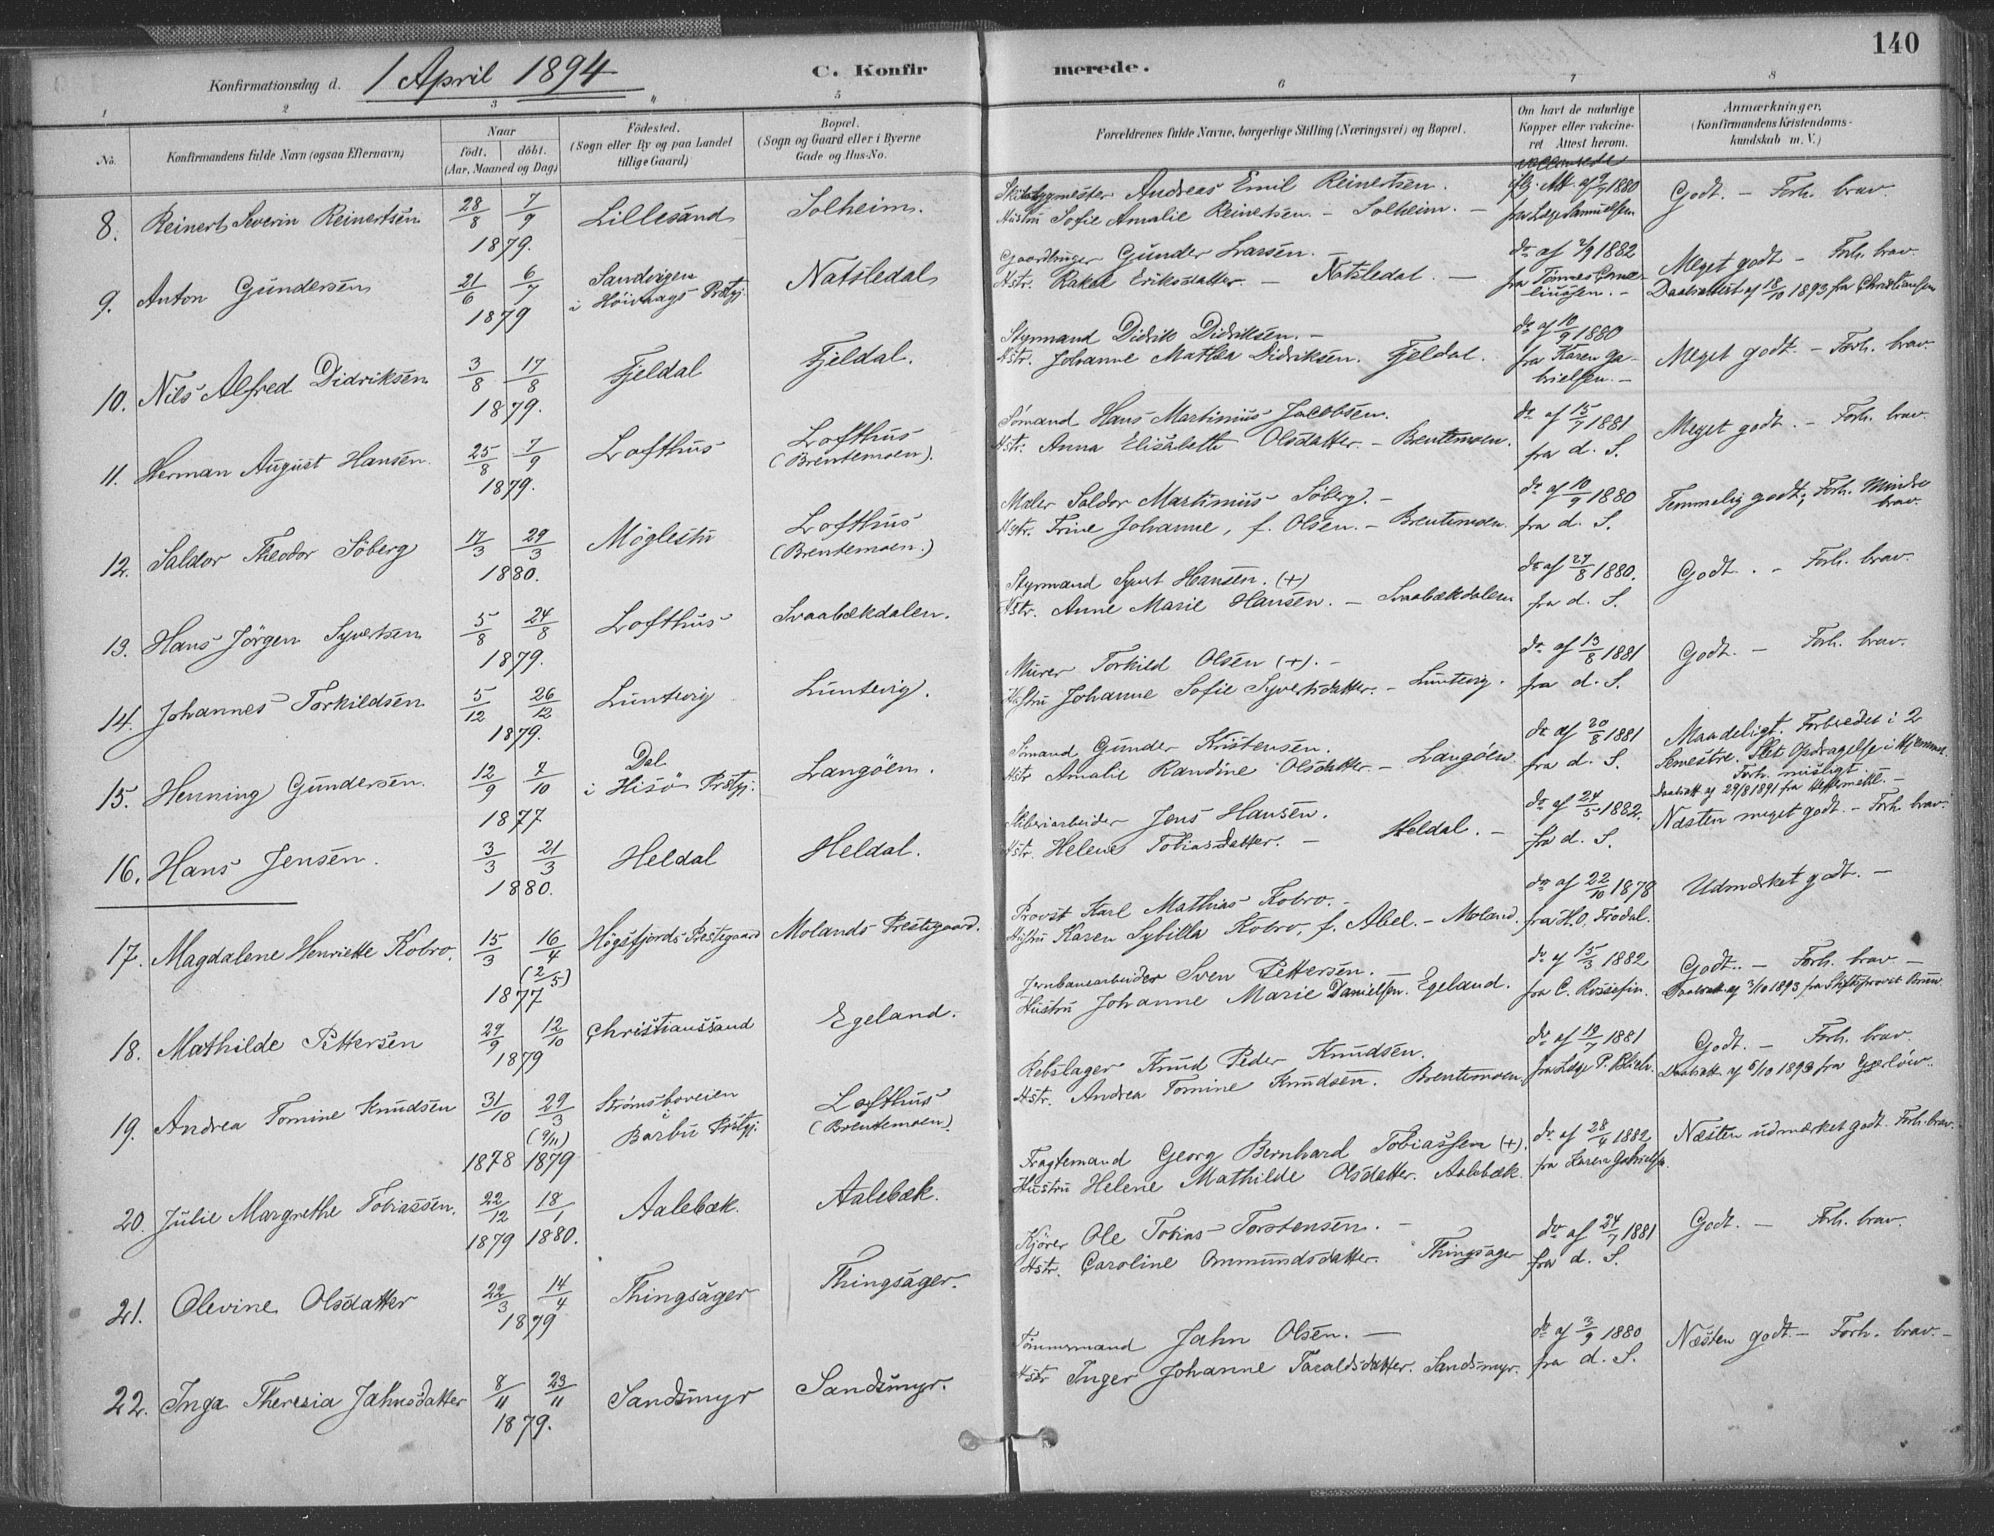 140
Konfirmationsdag d. 1 April 1894
C. Konfirmerede.
1 2 3 4 5 6 7 8
No.
Konfirmandens fulde Navn (ogsaa Efternavn)
Naar
födt. döbt.
(Aar, Maaned og Dag)
Födested.
(Sogn eller By og paa Landet
tillige Gaard)
Bopæl.
(Sogn og Gaard eller i Byerne
Gade og Hus-No.
Forældrenes fulde Navne, borgerlige Stilling (Næringsvei) og Bopæl.
Om havt de naturlige
Kopper eller vakcine-
ret Attest herom.
Anmærkninger.
(Konfirmandens Kristendoms-
kundskab m. V.)
8. Reinert Severin Reinertsen 28/8 7/9 1879. Lillesand Solheim.
Skibsbygmester Andreas Emil Reinertsen.
Hustru Sofie Amalie Reinertsen. – Solheim. –
1880
fra Læge Samuelsen
Godt. – Forh. brav.
9. Anton Gundersen 21/6 6/7 1879 Sandvigen i Höivaags Prstgj. Natsledal
Gaardbruger Gunder Larsen. –
Hstr. Rakel Eriksdatter. – Natsledal. –
do af 2/9 1882
fra Tönnes Corne-
liussen. –
Meget godt – Forh. brav.
Daabsattest af 18/10 1893 fra Christiansen
10. Nils Alfred Didriksen 3/8 17/8 1879. Fjeldal Fjeldal.
Styrmand Didrik Didriksen. –
Hstr. Johanne Mathea Didriksen. Fjeldal.
do af 10/9 1880
fra Karen Ga-
brielsen. –
Meget godt. – Forh. brav.
11. Herman August Hansen. 25/8 7/9 1879. Lofthus Lofthus (Brentemoen).
Sömand Hans Martinius Jacobsen.
Hstr. Anna Elisabeth Olsdatter – Brentemoen.
do af 15/7 1881
fra d. S.
Meget godt. – Forh. brav.
12. Saldor Theodor Söberg 17/3 29/3 1880. Möglestu Lofthus (Brentemoen.)
Maler Saldor Martinius Söberg. –
Hstr. Trine Johanne, f. Olsen. – Brentemoen.
do af 10/9 1880
fra d. S.
Temmelig godt; Forh. Mindre
brav.
13. Hans Jörgen Syvertsen 5/8 24/8 1879. Lofthus Svaabækdalen.
Styrmand Syvert Hansen. (+)
Hstr. Anne Marie Hansen. – Svaabækdalen
do af 27/8 1880.
fra d. S.
Godt. – Forh. brav.
14. Johannes Torkildsen 5/12 26/12 1879. Luntevig Luntevig.
Murer Torkild Olsen (+). –
Hustru Johanne Sofie Syvertsdatter. – Luntevig.
do af 13/8 1881
fra d. S.
Godt. – Forh. brav.
15. Henning Gundersen. 12/9 7/10 1877 Dal i Hisö Prstgj. Langöen.
Sömand Gunder Kristensen.
Hstr. Amalie Randine Olsdatter – Langöen
do af 20/8 1881
fra d. S.
Maadeligt. Forberedet i 2
Semestre. Slet Opdragelse i Hjemmet
Forh. misligt.
Daabsatt. af 29/8 1891 fra
16. Hans Jensen. 3/3 21/3 1880. Heldal Heldal.
Skiberiarbeider Jens Hansen.
Hstr. Helene Tobiasdatter. – Heldal. –
do af 24/5 1882.
fra d. S.
Næsten meget godt. – Forh. brav.
17. Magdalene Henriette Kobro. 15/3 16/4 (2/5) 1877 Högsfjords Prestegaard Molands Prestegaard.
Provst Karl Mathias Kobro. –
Hustru Karen Sybilla Kobro, f. Abel. – Moland.
do af 22/10 1878
fra H. O. Frodal.
Udmærket godt. –
18. Mathilde Pettersen 29/9 12/10 1879 Christianssand Egeland.
Jernbanearbeider Sven Pettersen. –
Hustru Johanne Marie Danielsen. Egeland.
do af 15/3 1882
fra C. Rossesin.
Godt. – Forh. brav. –
Daabsatt. af 3/10 1893 fra Stiftsprovst Bruun
19. Andrea Tomine Knudsen 31/10 29/3 (9/11) 1878 1879 Strömsboveien i Barbu Prstgj. Lofthus (Brentemoen).
Rebslager Knud Peder Knudsen.
Hstr. Andrea Tomine Knudsen. Brentemoen
do af 19/7 1881
fra Læge P. Blich.
Godt. – Forh. brav.
Daabsatt. af 5/10 1893 fra Gjerlöw.
20. Julie Margrethe Tobiassen. 22/12 18/1 1879 1880. Aalebæk. Aalebæk.
Fragtemand Georg Bernhard Tobiassen (+).
Hustru Helene Mathilde Olsdatter. Aalebæk.
do af 28/4 1882
fra Karen Gabrielsen.
Næsten udmærket godt. Forh. brav.
21. Olevine Olsdatter 22/3 14/4 1879 Thingsager Thingsager.
Kjörer Ole Tobias Torstensen. –
Hstr. Caroline Ommundsdatter. Thingsager
do af 24/7 1881
fra d. S.
Godt. – Forh. brav.
22. Inga Theresia Jahnsdatter 8/11 23/11 1879. Sandsmyr Sandsmyr.
Tömmermand Jahn Olsen. –
Hstr Inger Johanne Taraldsdatter. Sandsmyr.
do af 3/9 1880
fra d. S.
Næsten godt – Forh. brav. –